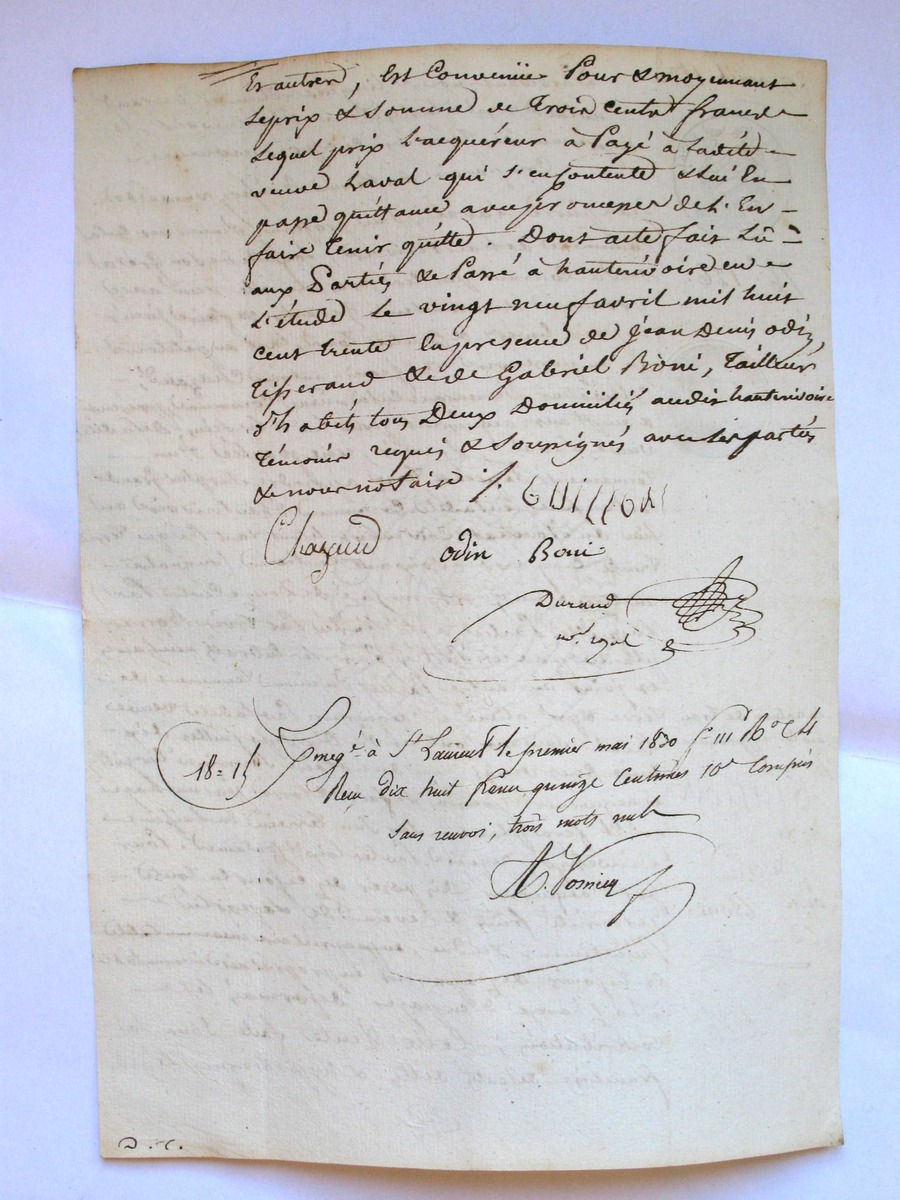 Et autres, est Convenüe Pour & moyennant
Le prix & Somme de Trois Cents francs
Lequel prix L'acquéreur à Payé à Ladite
veuve Laval qui s'en Contente & lui En
passe quittance avec promesse de L'En
faire Tenir quitte. Dont acte fait Lû
aux Parties & Passé à hauterivoire en
L'étude Le vingt neuf avril mil huit
cent trente En présence de jean Denis odin,
Tisserand & de Gabriel Boni, Tailleur
d'habits tous Deux Domiciliés audit hauterivoire
Témoins requis & Soussignés avec les parties
& nous notaire /.
GUILLON
Chazaud odin Boni
Durand
nre. royal
18=15
Enregé. à St Laurent le premier mai 1830 fo 111 Ro C 4
Reçu dix huit francs quinze Centimes 10e Compris
Sans renvoi, trois mots nuls
D. C.